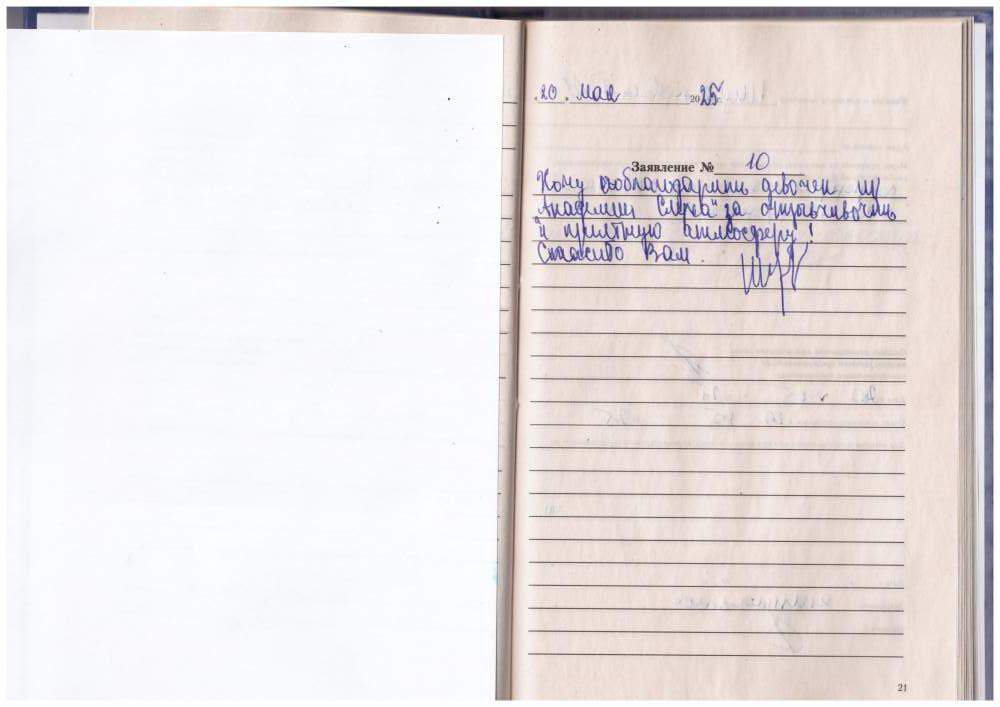 20 мая 2025
Заявление № 10
Хочу поблагодарить девочек из
"Академии Слуха" за отзывчивость
и приятную атмосферу!
Спасибо Вам.
21